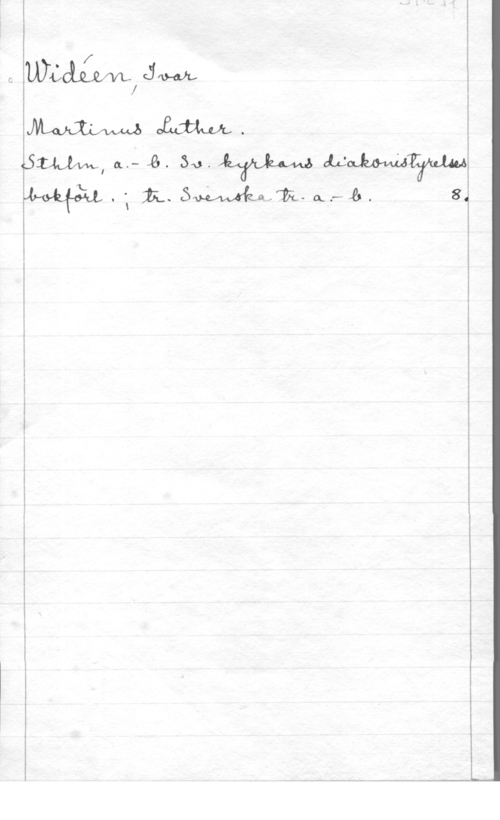 Widéen, Ivar
Martinus Luther.
Sthlm, a.-b. Sv. kyrkans diakonistyrelses
bokförl. ; tr. Svenska tr. a.-b. 8.